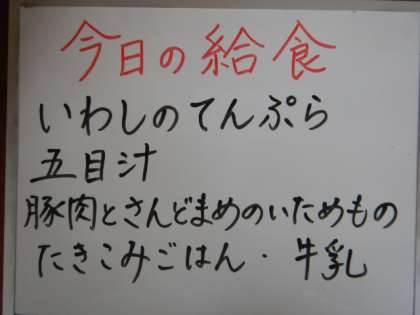 今日の給食
いわしのてんぷら
五目汁
豚肉とさんどまめのいためもの
たきこみごはん・牛乳